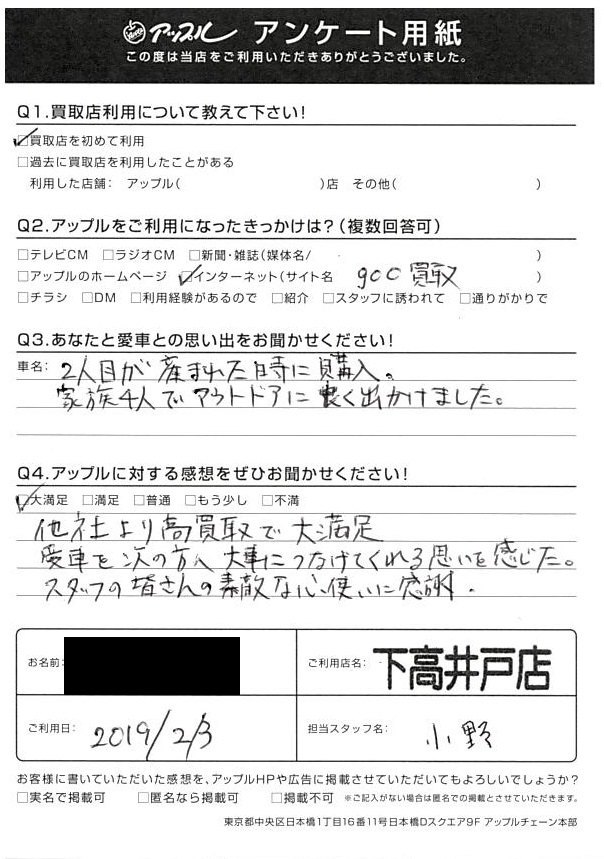 アップル アンケート用紙
この度は当店をご利用いただきありがとうございました。
Q1.買取店利用について教えて下さい!
☑買取店を初めて利用
□過去に買取店を利用したことがある
利用した店舗: アップル( )店 その他( )
Q2.アップルをご利用になったきっかけは?(複数回答可)
□テレビCM □ラジオCM □新聞・雑誌(媒体名/ )
□アップルのホームページ ☑インターネット(サイト名 goo買取 )
□チラシ □DM □利用経験があるので □紹介 □スタッフに誘われて □通りがかりで
Q3.あなたと愛車との思い出をお聞かせください!
車名: 2人目が産まれた時に購入。
家族4人でアウトドアに良く出かけました。
Q4.アップルに対する感想をぜひお聞かせください!
☑大満足 □満足 □普通 □もう少し □不満
他社より高買取で大満足
愛車を次の方へ大事につなげてくれる思いを感じた。
スタッフの皆さんの素敵な心使いに感謝.
お名前:
ご利用店名: 下高井戸店
ご利用日: 2019/2/3
担当スタッフ名: 小野
お客様に書いていただいた感想を、アップルHPや広告に掲載させていただいてもよろしいでしょうか?
□実名で掲載可 □匿名なら掲載可 □掲載不可 ※ご記入がない場合は匿名での掲載とさせていただきます。
東京都中央区日本橋1丁目16番11号日本橋Dスクエア9F アップルチェーン本部